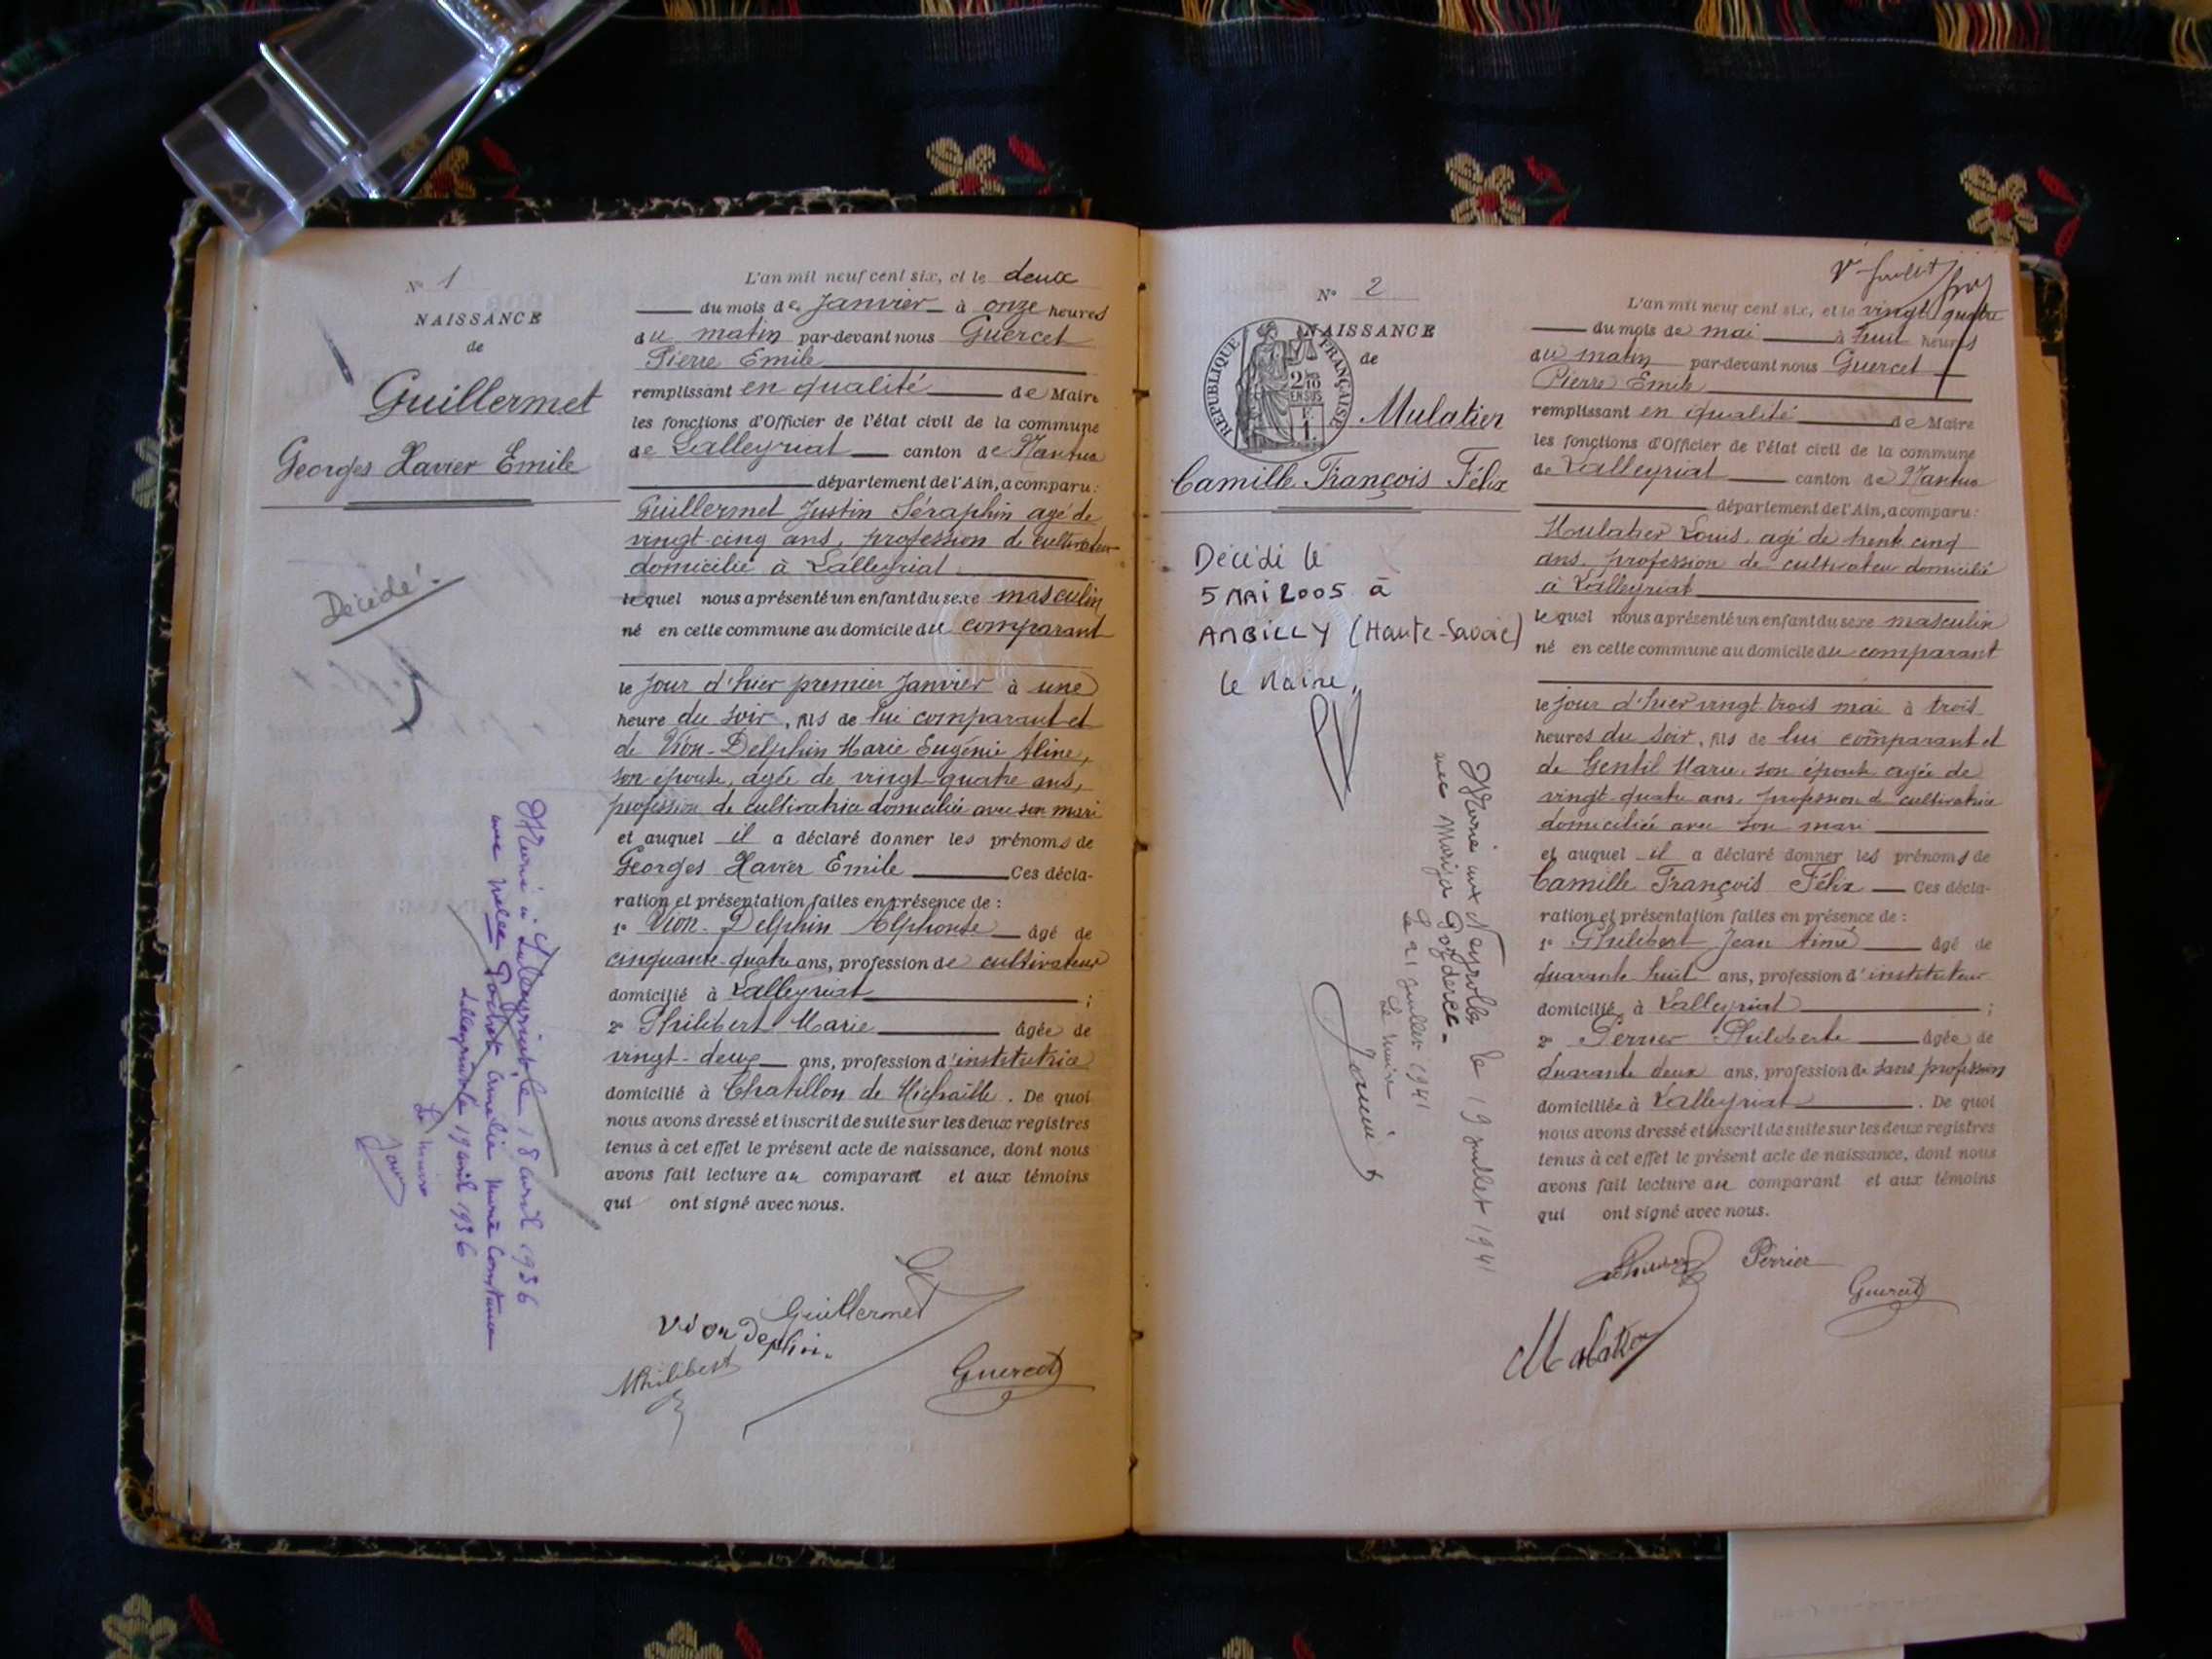 N° 1
NAISSANCE
de
Guillermet
Georges Xavier Emile
Décédé.
Marié à Lalleyriat le 18 avril 1936
avec Melle Pochet Amélie Marie Constance
Lalleyriat le 19 avril 1936
Le Maire
L'an mil neuf cent six, et le deux
du mois de Janvier à onze heures
du matin par-devant nous Guercet
Pierre Emile
remplissant en qualité de Maire
les fonctions d'Officier de l'état civil de la commune
de Lalleyriat canton de Nantua
département de l'Ain, a comparu:
Guillermet Justin Séraphin agé de
vingt-cinq ans, profession de cultivateur
domicilié à Lalleyriat
lequel nous a présenté un enfant du sexe masculin
né en cette commune au domicile du comparant
le jour d'hier premier Janvier à une
heure du soir, fils de lui comparant et
de Vion-Delphin Marie Eugénie Aline,
son épouse, agée de vingt-quatre ans,
profession de cultivatrice domiciliée avec son mari
et auquel il a déclaré donner les prénoms de
Georges Xavier Emile Ces décla-
ration et présentation faites en présence de:
1° Vion-Delphin Alphonse âgé de
cinquante-quatre ans, profession de cultivateur
domicilié à Lalleyriat ;
2° Philibert Marie âgée de
vingt-deux ans, profession d'institutrice
domicilié à Chatillon de Michaille. De quoi
nous avons dressé et inscrit de suite sur les deux registres
tenus à cet effet le présent acte de naissance, dont nous
avons fait lecture au comparant et aux témoins
qui ont signé avec nous.
Guillermet
Vion Dephin.
MPhilibert
Guercet
N° 2
NAISSANCE
de
REPUBLIQUE FRANÇAISE
2/10
EN SUS
Mulatier
Camille François Félix
Décédé le
5 MAI 2005 à
AMBILLY (Haute-Savoie)
Le Maire,
Marié aux Neyrolles le 19 juillet 1941
avec Marija Pozderec-
Le 21 juillet 1941
Le Maire
L'an mil neuf cent six, et le vingt quatre
du mois de mai à huit heures
du matin par-devant nous Guercet
Pierre Emile
remplissant en qualité de Maire
les fonctions d'Officier de l'état civil de la commune
de Lalleyriat canton de Nantua
département de l'Ain, a comparu:
Mulatier Louis, agé de trente cinq
ans, profession de cultivateur domicilié
à Lalleyriat
lequel nous a présenté un enfant du sexe masculin
né en cette commune au domicile du comparant
le jour d'hier vingt trois mai à trois
heures du soir, fils de lui comparant et
de Gentil Marie, son épouse agée de
vingt quatre ans, profession de cultivatrice
domiciliée avec son mari
et auquel il a déclaré donner les prénoms de
Camille François Félix Ces décla-
ration et présentation faites en présence de:
1° Philibert Jean Aimé âgé de
quarante huit ans, profession d'instituteur
domicilié à Lalleyriat ;
2° Perrier Philiberte âgée de
quarante deux ans, profession de sans profession
domiciliée à Lalleyriat. De quoi
nous avons dressé et inscrit de suite sur les deux registres
tenus à cet effet le présent acte de naissance, dont nous
avons fait lecture au comparant et aux témoins
qui ont signé avec nous.
Perrier
Guercet
Mulatier